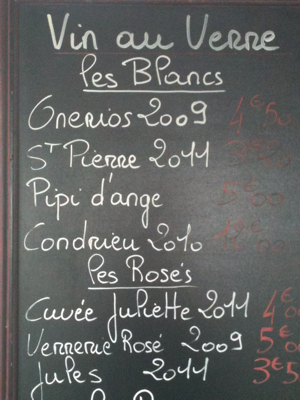 Vin au Verre
les Blancs
Gnerios 2009 4€50
St Pierre 2011
Pipi d'ange 5€00
Condrieu 2010
les Rosés
Cuvée Juliette 2011 4€
Verrerie Rosé 2009 5€00
Jules 2011 3€5